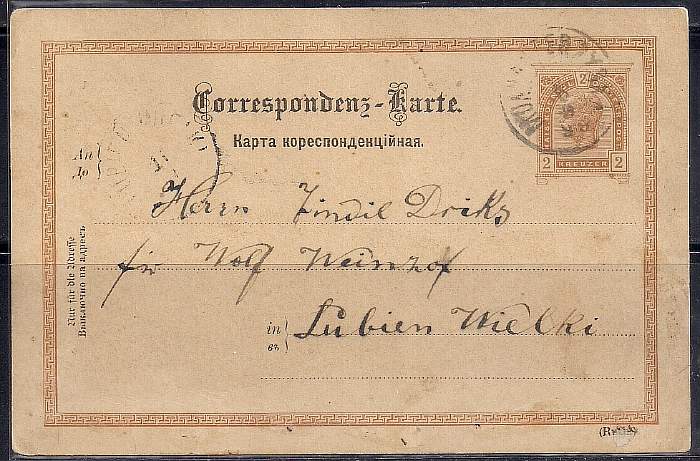 2
Correspondenz-Karte.
Карта кореспонденційная.
2 KREUZER 2
An
До
Herrn Zindil Driks
für Wolf Weinhof
in
въ
Lubien Wielki
Nur für die Adresse
Выключно на адресъ